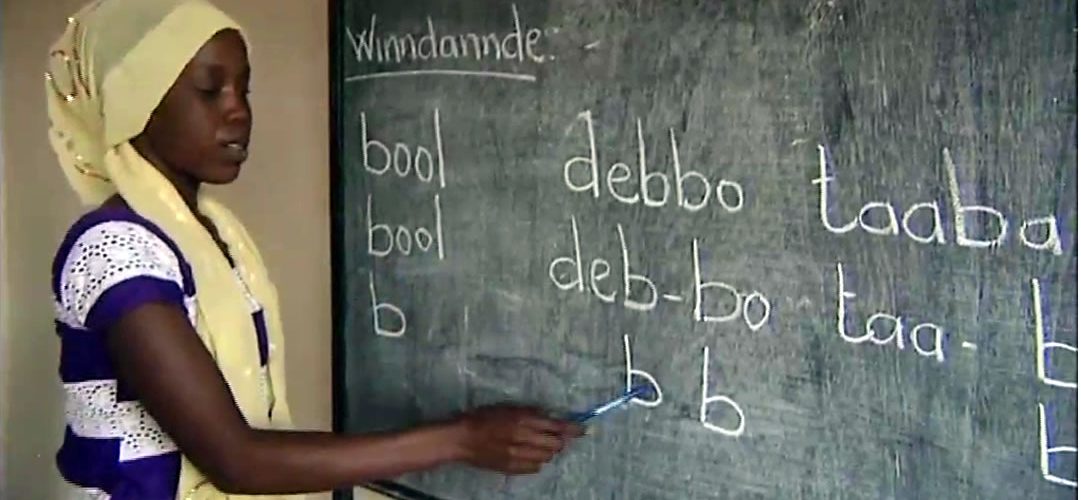 Winndannde:-
bool debbo taaba
bool deb-bo taa-b
b b b b